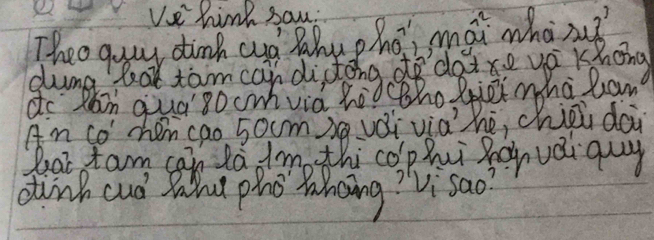 Vẽ hình sau:
Theo quy định của khu phố, mỗi nhà sử
dụng bậc tam cấp di động để dắt xe và không
đc lấn quá 80cm vỉa hè. Cho biết nhà bạn
An có nền cao 50cm so với vỉa hè, chiều dài
bậc tam cấp là 1m, thì có phù hợp với quy
định của khu phố không? Vì sao?